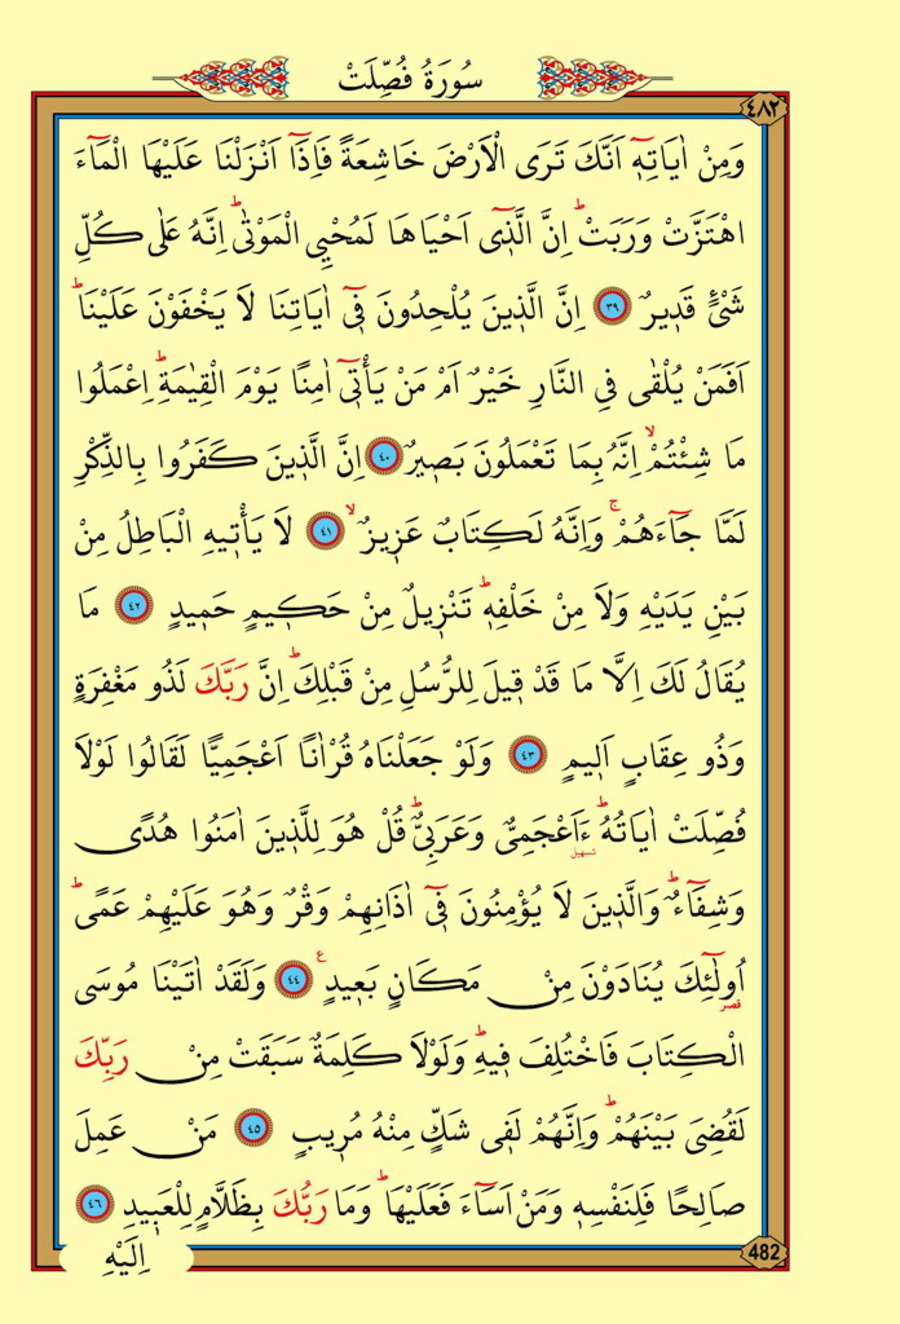 سُورَةُ فُصِّلَتْ
٤٨٢
وَمِنْ اٰيَاتِهٖٓ اَنَّكَ تَرَى الْاَرْضَ خَاشِعَةً فَاِذَٓا اَنْزَلْنَا عَلَيْهَا الْمَٓاءَ
اهْتَزَّتْ وَرَبَتْۜ اِنَّ الَّذٖٓى اَحْيَاهَا لَمُحْيِى الْمَوْتٰىۜ اِنَّهُ عَلٰى كُلِّ
شَىْءٍ قَدٖيرٌ ﴿٣٩﴾ اِنَّ الَّذٖينَ يُلْحِدُونَ فٖٓى اٰيَاتِنَا لَا يَخْفَوْنَ عَلَيْنَاۜ
اَفَمَنْ يُلْقٰى فِى النَّارِ خَيْرٌ اَمْ مَنْ يَأْتٖٓى اٰمِنًا يَوْمَ الْقِيٰمَةِۜ اِعْمَلُوا
مَا شِئْتُمْۙ اِنَّهُ بِمَا تَعْمَلُونَ بَصٖيرٌ ﴿٤٠﴾ اِنَّ الَّذٖينَ كَفَرُوا بِالذِّكْرِ
لَمَّا جَٓاءَهُمْۚ وَاِنَّهُ لَكِتَابٌ عَزٖيزٌۙ ﴿٤١﴾ لَا يَأْتٖيهِ الْبَاطِلُ مِنْ
بَيْنِ يَدَيْهِ وَلَا مِنْ خَلْفِهٖۜ تَنْزٖيلٌ مِنْ حَكٖيمٍ حَمٖيدٍ ﴿٤٢﴾ مَا
يُقَالُ لَكَ اِلَّا مَا قَدْ قٖيلَ لِلرُّسُلِ مِنْ قَبْلِكَۜ اِنَّ رَبَّكَ لَذُو مَغْفِرَةٍ
وَذُو عِقَابٍ اَلٖيمٍ ﴿٤٣﴾ وَلَوْ جَعَلْنَاهُ قُرْاٰنًا اَعْجَمِيًّا لَقَالُوا لَوْلَا
فُصِّلَتْ اٰيَاتُهُۜ ءَاَعْجَمِىٌّ وَعَرَبِىٌّۜ قُلْ هُوَ لِلَّذٖينَ اٰمَنُوا هُدًى
تسهيل
وَشِفَٓاءٌۜ وَالَّذٖينَ لَا يُؤْمِنُونَ فٖٓى اٰذَانِهِمْ وَقْرٌ وَهُوَ عَلَيْهِمْ عَمًىۜ
اُولٰٓئِكَ يُنَادَوْنَ مِنْ مَكَانٍ بَعٖيدٍ ع ﴿٤٤﴾ وَلَقَدْ اٰتَيْنَا مُوسَى
قصر
الْكِتَابَ فَاخْتُلِفَ فٖيهِۜ وَلَوْلَا كَلِمَةٌ سَبَقَتْ مِنْ رَبِّكَ
لَقُضِىَ بَيْنَهُمْۜ وَاِنَّهُمْ لَفٖى شَكٍّ مِنْهُ مُرٖيبٍ ﴿٤٥﴾ مَنْ عَمِلَ
صَالِحًا فَلِنَفْسِهٖ وَمَنْ اَسَٓاءَ فَعَلَيْهَاۜ وَمَا رَبُّكَ بِظَلَّامٍ لِلْعَبٖيدِ ﴿٤٦﴾
482
اِلَيْهِ